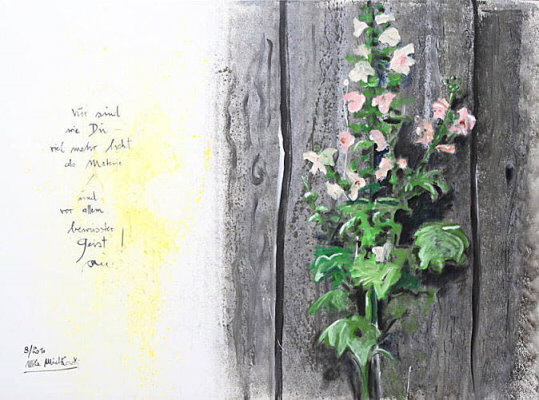 Wir sind
wie Du –
viel mehr Licht
als Materie
/
sind
vor allem
bewusster
Geist
8/20